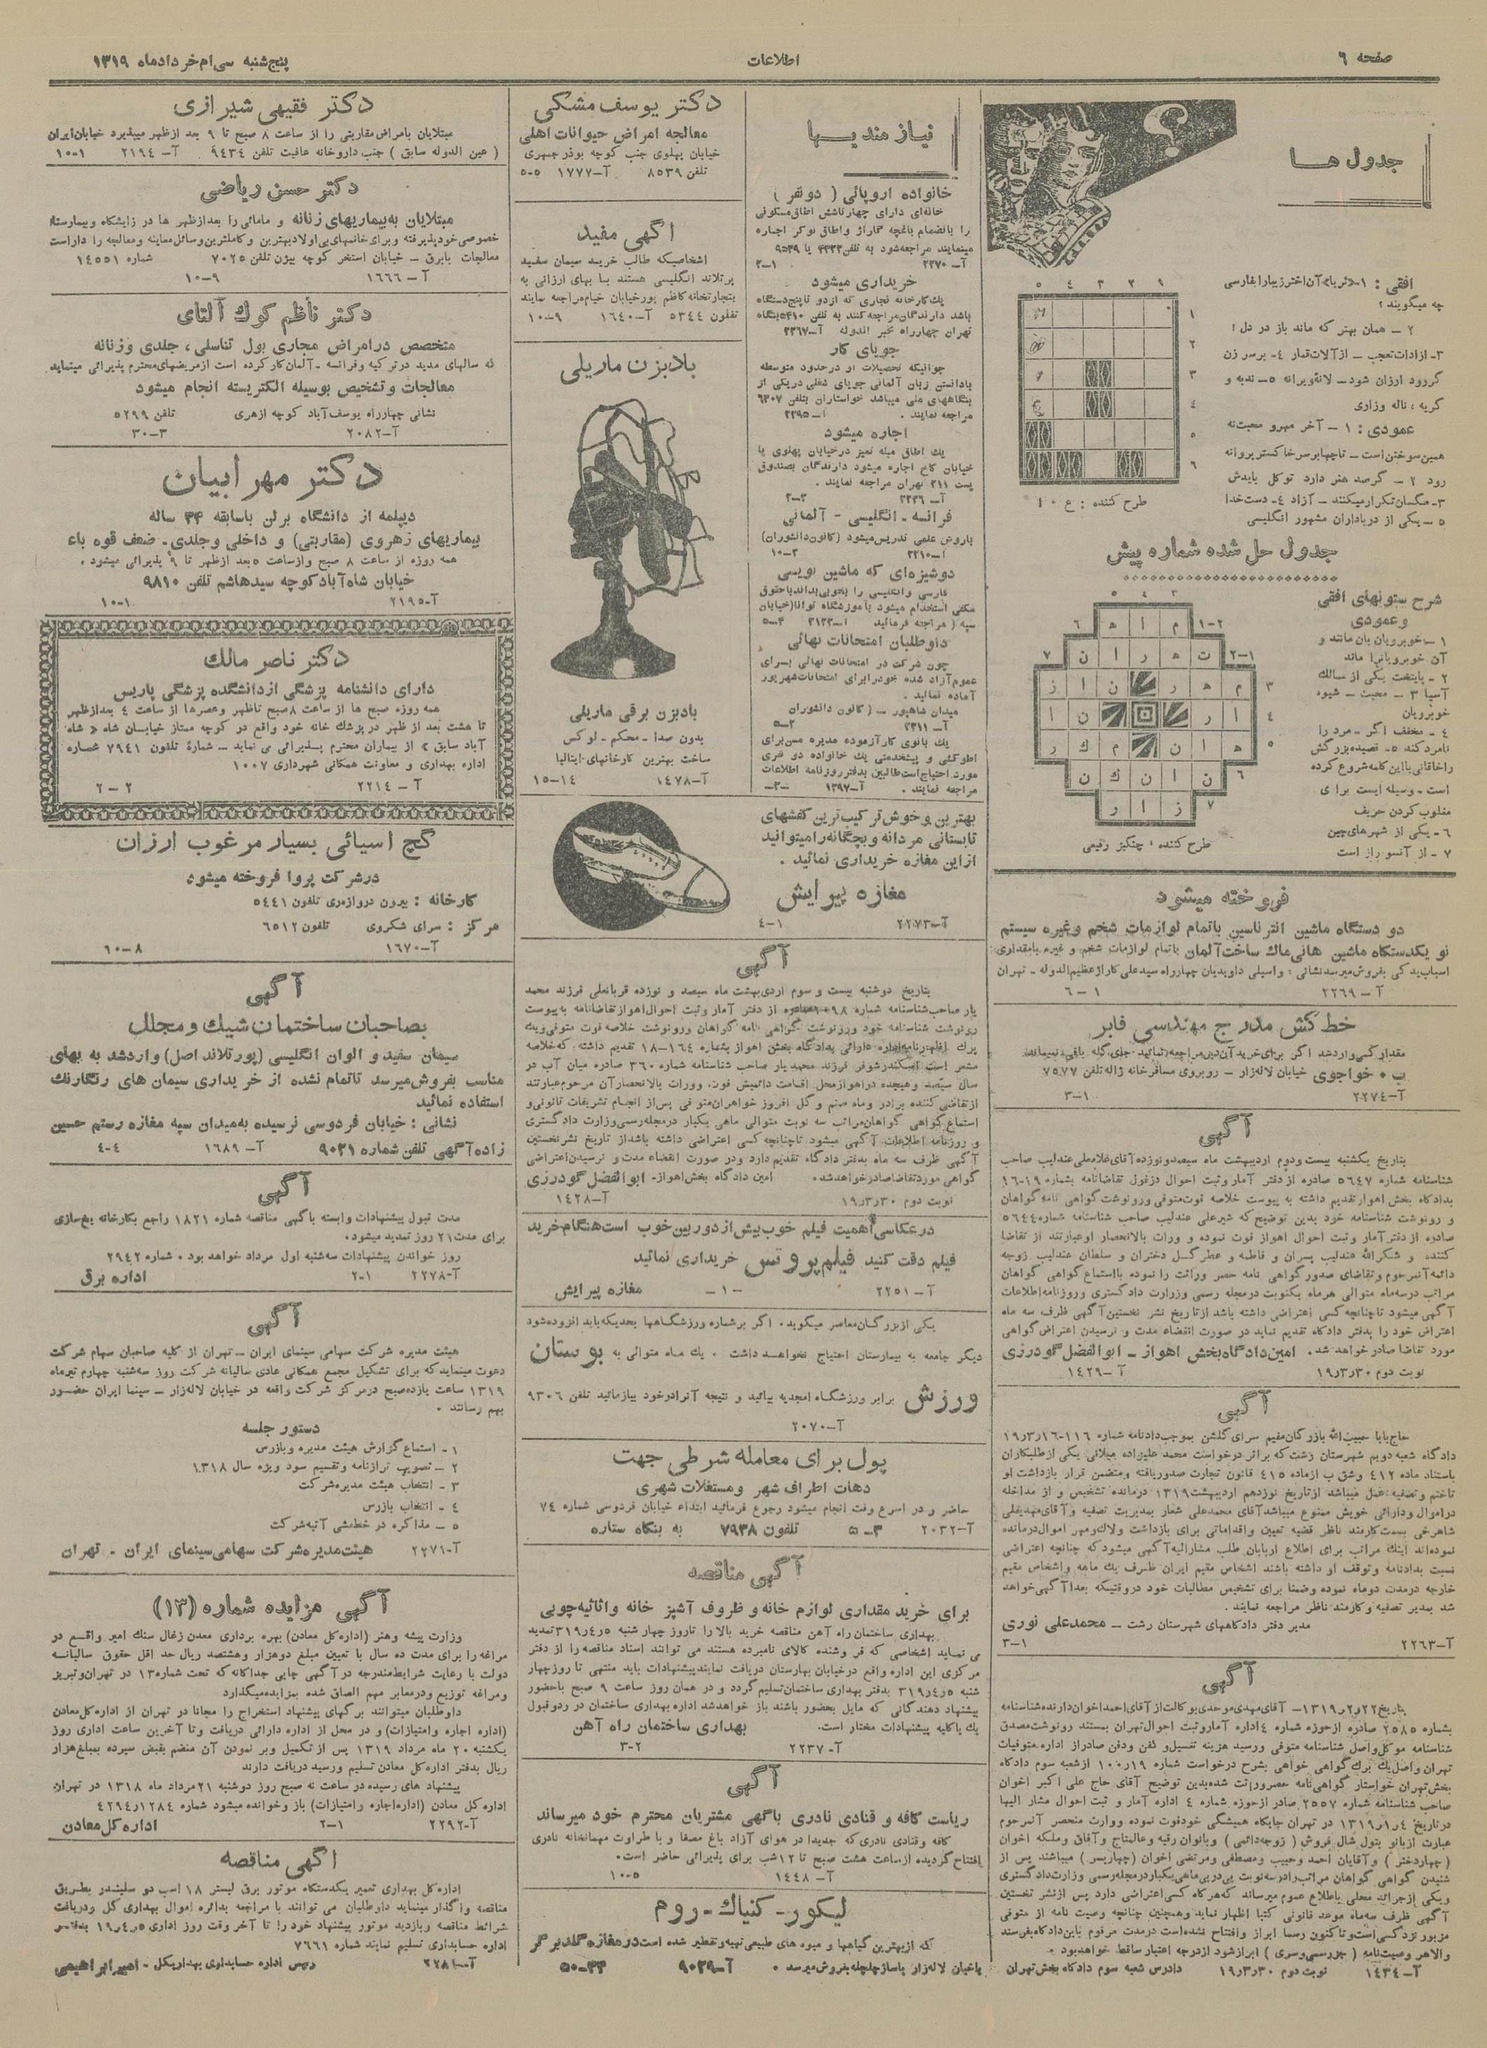 صفحه ۶
اطلاعات
پنج‌شنبه سی‌ام خرداد ماه ۱۳۱۹
جدول ها
افقی : ۱- «ثریا» آن اختر زیبا را بفارسی
چه میگویند ؟
۲ - همان بهتر که ماند باز در دل !
۳- ازادات تعجب - از آلات قمار ۴- بر سر زن
گر رود ارزان شود - لانه ویرانه ۵- ندبه و
گریه ، ناله وزاری
عمودی : ۱ - آخر مهر و محبت نه
همین سوختن است - تا چها بر سر خاکستر پروانه
رود ۲ - گر صد هنر دارد توکل بایدش
۳- مگسان تکرار میکنند - آزاد ۴- دست خدا
۵ - یکی از دریاداران مشهور انگلیسی
طرح کننده : ع ۱۰
جدول حل شده شماره پیش
شرح ستونهای افقی
و عمودی
۱ - خوبرویان بآن مانند و
آن خوبرویان را ماند
۲ - پایتخت یکی از ممالک
آسیا ۳ - محبت - شیوه
خوبرویان
۴ - مخفف اگر - مرد را
نامرد کند ۵- قصیده بزرگش
را خاقانی با این کلمه شروع کرده
است - وسیله ایست برای
مغلوب کردن حریف
۶ - یکی از شهرهای چین
۷ - از آنسو راز است
طرح کننده : چنگیز رفیعی
فروخته میشود
دو دستگاه ماشین انترناسین باتمام لوازمات شخم وغیره سیستم
نو یکدستگاه ماشین هانی ماک ساخت آلمان باتمام لوازمات شخم و غیره بامقداری
اسباب یدکی بفروش میرسد نشانی : واسیلی داویدیان چهارراه سیدعلی کاراژ عظیم‌الدوله - تهران
آ- ۲۲۶۹ ۱-۶
خط کش مدرج مهندسی فابر
مقدار کمی وارد شد اگر برای خرید آن دیر مراجعه نمائید جای گله باقی نمیماند
ب . خواجوی خیابان لاله‌زار - روبروی مسافرخانه ژاله تلفن ۷۵۷۷
آ-۲۲۷۴ ۱-۳
آگهی
بتاریخ یکشنبه بیست و دوم اردیبهشت ماه سیصد و نوزده آقای غلامعلی عندلیب صاحب
شناسنامه شماره ۵۶۴۷ صادره از دفتر آمار و ثبت احوال دزفول تقاضانامه بشماره ۱۹-۱۶
بدادگاه بخش اهواز تقدیم داشته به پیوست خلاصه فوت متوفی ورونوشت گواهی نامه گواهان
و رونوشت شناسنامه خود بدین توضیح که شیرعلی عندلیب صاحب شناسنامه شماره ۵۶۴۴
صادره از دفتر آمار وثبت احوال اهواز فوت نموده و وراث بالانحصار او عبارتند از تقاضا
کننده و شکرالله عندلیب پسران و فاطمه و عطر گل دختران و سلطان عندلیب زوجه
دائمه آنمرحوم و تقاضای صدور گواهی نامه حصر وراثت را نموده بااستماع گواهی گواهان
مراتب در سه ماه متوالی هر ماه یکنوبت در مجله رسمی وزارت دادگستری و روزنامه اطلاعات
آگهی میشود تا چنانچه کسی اعتراضی داشته باشد از تاریخ نشر نخستین آگهی ظرف سه ماه
اعتراض خود را بدفتر دادگاه تقدیم نماید در صورت انقضاء مدت و نرسیدن اعتراض گواهی
مورد تقاضا صادر خواهد شد . امین دادگاه بخش اهواز - ابوالفضل گودرزی
نوبت دوم ۱۹ر۳ر۳۰ آ- ۱۴۲۹
آگهی
حاج بابا حبیب‌الله بازرگان مقیم سرای گلشن بموجب دادنامه شماره ۱۱۶-۱۹ر۳ر۱۶
دادگاه شعبه دویم شهرستان رشت که براثر درخواست محمد علیزاده میلانی یکی از طلبکاران
باستناد ماده ۴۱۲ و شق ب از ماده ۴۱۵ قانون تجارت صدور یافته و متضمن قرار بازداشت او
در اموال ودارائی خویش ممنوع میباشد آقای محمدعلی شعار بمدیریت تصفیه و آقای مهدیقلی
شاهرخی بسمت کارمند ناظر قضیه تعیین واقداماتی برای بازداشت ولاک ومهر اموال درمانده
نموده‌اند اینک مراتب برای اطلاع اربابان طلب مشارالیه آگهی میشود که چنانچه اعتراضی
نسبت بدادنامه وتوقف او داشته باشند اشخاص مقیم ایران ظرف یک ماهه واشخاص مقیم
خارجه در مدت دو ماه نموده وضمنا برای تشخیص مطالبات خود در وقتیکه بعدا آگهی خواهد
شد بمدیر تصفیه و کارمند ناظر مراجعه نمایند .
مدیر دفتر دادگاههای شهرستان رشت - محمدعلی نوری
آ-۲۲۶۳ ۱-۳
آگهی
بتاریخ ۱۳۱۹ر۲ر۲۲- آقای مهدی موحدی بوکالت از آقای احمد اخوان دارنده شناسنامه
بشماره ۲۵۸۵ صادره از حوزه شماره ۴ اداره آمار وثبت احوال تهران بمستند رونوشت مصدق
شناسنامه موکل واصل شناسنامه متوفی ورسید هزینه تغسیل و کفن ودفن صادر از اداره متوفیات
تهران واصل یک برگ گواهی خواهی بشرح درخواست شماره ۱۰۰ر۱۹ از شعبه سوم دادگاه
بخش تهران خواستار گواهی‌نامه حصر وراثت شده بدین توضیح آقای حاج علی اکبر اخوان
صاحب شناسنامه شماره ۲۵۵۷ صادر از حوزه شماره ۴ اداره آمار و ثبت احوال مشار الیها
در تاریخ ۱۳۱۹ر۱ر۴ در تهران جایگاه همیشگی خود فوت نموده ووراث منحصر آنمرحوم
عبارت از بانو بتول شال فروش ( زوجه دائمی ) وبانوان رقیه وعالمتاج وآفاق وملکه اخوان
( چهار دختر ) و آقایان احمد وحبیب ومصطفی ومرتضی اخوان ( چهار پسر ) میباشند پس از
شنیدن گواهی گواهان مراتب را در سه نوبت پی در پی ماهی یکبار در مجله رسمی وزارت دادگستری
ویکی از جرائد محلی باطلاع عموم میرساند که هرگاه کسی اعتراضی دارد پس از نشر نخستین
آگهی ظرف سه ماه موعد قانونی کتبا اظهار نماید وهمچنین چنانچه وصیت نامه از متوفی
مزبور نزد کسی است و تاکنون رسما ابراز وافتتاح نشده است در مدت مرقوم باین دادگاه بفرستد
والا هر وصیت‌نامه ( جز رسمی وسری ) ابراز شود از درجه اعتبار ساقط خواهد بود .
آ- ۱۴۳۴ نوبت دوم ۱۹ر۳ر۳۰ دادرس شعبه سوم دادگاه بخش تهران
نیازمندیها
خانواده اروپائی ( دو نفر )
خانه‌ای دارای چهار تا شش اطاق مسکونی
را بانضمام باغچه گاراژ واطاق نوکر اجاره
مینمایند مراجعه شود به تلفن ۴۳۳۳ یا ۹۵۳۹
آ- ۲۲۷۰ ۱-۲
خریداری میشود
یک کارخانه نجاری که از دو تا پنج دستگاه
باشد دارندگان مراجعه کنند به تلفن ۵۴۱۰ بنگاه
تهران چهارراه مخبر الدوله آ-۲۲۶۷
جویای کار
جوانیکه تحصیلات او در حدود متوسطه
بادانستن زبان آلمانی جویای شغلی در یکی از
بنگاههای ملی میباشد خواستاران بتلفن ۶۳۰۷
مراجعه نمایند . آ-۲۲۹۵
اجاره میشود
یک اطاق مبله تمیز در خیابان پهلوی یا
خیابان کاخ اجاره میشود دارندگان بصندوق
پست ۲۱۱ تهران مراجعه نمایند .
آ- ۲۲۳۶ ۲-۲
فرانسه - انگلیسی - آلمانی
باروش علمی تدریس میشود (کانون دانشوران)
آ-۲۲۱۰ ۳-۱۰
دوشیزه‌ای که ماشین نویسی
فارسی وانگلیسی را بخوبی بداند باحقوق
مکفی استخدام میشود با آموزشگاه توانا (خیابان
سپه) مراجعه فرمائید آ-۲۱۲۲ ۴-۵
داوطلبان امتحانات نهائی
چون شرکت در امتحانات نهائی برای
عموم آزاد شده خود را برای امتحانات شهریور
آماده نماید .
میدان شاهپور - (کانون دانشوران
آ-۲۲۱۱ ۲-۵
یک بانوی کارآزموده مدیره مسن برای
اطوکشی و پیشخدمتی یک خانواده دو نفری
مورد احتیاج است طالبین بدفتر روزنامه اطلاعات
مراجعه نمایند . آ-۱۳۹۷ -۳-
دکتر یوسف مشکی
معالجه امراض حیوانات اهلی
خیابان پهلوی جنب کوچه بوذرجمهری
تلفن ۸۵۳۹ آ-۱۷۷۷ ۵-۵
آگهی مفید
اشخاصیکه طالب خرید سیمان سفید
پرتلاند انگلیسی هستند بـا بهای ارزانی به
تجارتخانه کاظم پور خیابان خیام مراجعه نمایند
تلفون ۵۳۴۴ آ-۱۶۴۰ ۹-۱۰
بادبزن ماریلی
بادبزن برقی ماریلی
بدون صدا - محکم - لوکس
ساخت بهترین کارخانهای ایتالیا
آ-۱۴۷۸ ۱۴-۱۵
بهترین وخوش ترکیب ترین کفشهای
تابستانی مردانه وبچگانه را میتوانید
از این مغازه خریداری نمائید .
مغازه پیرایش
آ-۲۲۷۳ ۱-۴
آگهی
بتاریخ دوشنبه بیست و سوم اردیبهشت ماه سیصد و نوزده قربانعلی فرزند محمد
رونوشت شناسنامه خود ورونوشت گواهی نامه گواهان ورونوشت خلاصه فوت متوفی ویک
سال سیصد وهیجده در اهواز محل اقامت دائمیش فوت، ووراث بالانحصار آن مرحوم عبارتند
از تقاضی کننده برادر و ماه صنم و گل افروز خواهران متوفی پس از انجام تشریفات قانونی و
استماع گواهی گواهان مراتب سه نوبت متوالی ماهی یکبار در مجله رسمی وزارت دادگستری
و روزنامه اطلاعات آگهی میشود تا چنانچه کسی اعتراضی داشته باشد از تاریخ نشر نخستین
آگهی ظرف سه ماه بدفتر دادگاه تقدیم دارد و در صورت انقضاء مدت و نرسیدن اعتراضی
گواهی مورد تقاضا صادر خواهد شد. امین دادگاه بخش اهواز- ابوالفضل گودرزی
نوبت دوم ۱۹ر۳ر۳۰ آ-۱۴۲۸
در عکاسی اهمیت فیلم خوب بیش از دوربین خوب است هنگام خرید
فیلم دقت کنید فیلم پروتس خریداری نمائید
آ- ۲۲۵۱ -۱- مغازه پیرایش
یکی از بزرگان معاصر میگوید. اگر بر شماره ورزشگاهها بحدیکه باید افزوده شود
دیگر جامعه به بیمارستان احتیاج نخواهد داشت . یک ماه متوالی به بوستان
ورزش برابر ورزشگاه امجدیه بیائید و نتیجه آنرا در خود بیازمائید تلفن ۹۳۰۶
آ-۲۰۷۰
پول برای معامله شرطی جهت
دهات اطراف شهر ومستغلات شهری
حاضر و در اسرع وقت انجام میشود رجوع فرمائید ابتداء خیابان فردوسی شماره ۷۴
آ-۲۰۳۲ ۳-۵ تلفون ۷۹۳۸ به بنگاه ستاره
آگهی مناقصه
برای خرید مقداری لوازم خانه و ظروف آشپز خانه واثاثیه چوبی
بهداری ساختمان راه آهن مناقصه خرید بالا را تا روز چهارشنبه ۳۱۹ر۴ر۵ تمدید
می نماید اشخاصی که فروشنده کالای نامبرده هستند می توانند اسناد مناقصه را از دفتر
مرکزی این اداره واقع در خیابان بهارستان دریافت نمایند پیشنهادات باید منتهی تا روز چهار
شنبه ۳۱۹ر۴ر۵ بدفتر بهداری ساختمان تسلیم گردد و در همان روز ساعت ۹ صبح باحضور
پیشنهاد دهندگانی که مایل بحضور باشند باز خواهد شد اداره بهداری ساختمان در رد وقبول
یک یا کلیه پیشنهادات مختار است. بهداری ساختمان راه آهن
آ- ۲۲۳۷ ۲-۳
آگهی
ریاست کافه و قنادی نادری باگهی مشتریان محترم خود میرساند
کافه وقنادی نادری که جدیدا در هوای آزاد باغ مصفا و باطراوت مهمانخانه نادری
افتتاح گردیده از ساعت هشت صبح تا ۱۲ شب برای پذیرائی حاضر است.
آ- ۱۴۴۸ ۵-۱۰
لیکور - کنیاک - روم
که از بهترین گیاهها و میوه های طبیعی تهیه و تقطیر شده است در مغازه گلد برگر
پاخیابان لاله‌زار پاساژ چلچله بفروش میرسد . آ-۹۰۳۹ ۳۴-۵۰
دکتر فقیهی شیرازی
مبتلایان بامراض مقاربتی را از ساعت ۸ صبح تا ۹ بعد از ظهر میپذیرد خیابان ایران
( عین الدوله سابق ) جنب داروخانه عافیت تلفن ۹۴۳۴ آ- ۲۱۹۴ ۱-۱۰
دکتر حسن ریاضی
مبتلایان به بیماریهای زنانه و مامائی را بعد از ظهر ها در زایشگاه وبیمارستان
خصوصی خود پذیرفته وبرای خانمهای بی اولاد بهترین و کاملترین وسائل معاینه ومعالجه را دار است
معالجات بابرق - خیابان استخر کوچه بیژن تلفن ۷۰۲۵ شماره ۱۴۵۵۱
آ - ۱۶۶۶ ۹-۱۰
دکتر ناظم کوک آلتای
متخصص در امراض مجاری بول تناسلی، جلدی وزنانه
که سالهای مدید در ترکیه وفرانسه - آلمان کار کرده است از مریضهای محترم پذیرائی مینماید
معالجات و تشخیص بوسیله الکتریسته انجام میشود
نشانی چهارراه یوسف‌آباد کوچه ازهری تلفن ۵۲۹۹
آ-۲۰۸۲ ۳-۳۰
دکتر مهرابیان
دیپلمه از دانشگاه برلن باسابقه ۳۴ ساله
بیماریهای زهروی (مقاربتی) و داخلی وجلدی- ضعف قوه باء
همه روزه از ساعت ۸ صبح واز ساعت ۵ بعد از ظهر تا ۹ پذیرائی میشود .
خیابان شاه‌آباد کوچه سیدهاشم تلفن ۹۸۱۰
آ-۲۱۹۵ ۱-۱۰
دکتر ناصر مالک
دارای دانشنامه پزشگی از دانشکده پزشگی پاریس
همه روزه صبح ها از ساعت ۸ صبح تا ظهر وعصرها از ساعت ۴ بعد از ظهر
تا هشت بعد از ظهر در پزشک خانه خود واقع در کوچه ممتاز خیابان شاه «شاه
آباد سابق» از بیماران محترم پذیرائی می نماید - شماره تلفون ۷۹۴۱ شماره
اداره بهداری و معاونت همگانی شهرداری ۱۰۰۷
آ - ۲۲۱۴ ۲-۲
گچ آسیائی بسیار مرغوب ارزان
در شرکت پروا فروخته میشود
کارخانه : بیرون دروازه ری تلفون ۵۴۴۱
مرکز : سرای شکروی تلفون ۶۵۱۲
آ-۱۶۷۰ ۸-۶۰
آگهی
بصاحبان ساختمان شیک و مجلل
سیمان سفید و الوان انگلیسی (پورتلاند اصل) وارد شد به بهای
مناسب بفروش میرسد تا تمام نشده از خریداری سیمان های رنگارنگ
استفاده نمائید
نشانی : خیابان فردوسی نرسیده به میدان سپه مغازه رستم حسین
زاده آگهی تلفن شماره ۹۰۲۱ آ- ۱۶۸۹ ۴-۴
آگهی
مدت قبول پیشنهادات وابسته باگهی مناقصه شماره ۱۸۲۱ راجع بکارخانه یخ‌سازی
برای مدت ۲۱ روز تمدید میشود.
روز خواندن پیشنهادات سه‌شنبه اول مرداد خواهد بود . شماره ۲۹۴۲
آ-۲۲۷۸ ۱-۲ اداره برق
آگهی
هیئت مدیره شرکت سهامی سینمای ایران - تهران از کلیه صاحبان سهام شرکت
دعوت مینماید که برای تشکیل مجمع همگانی عادی سالیانه شرکت روز سه‌شنبه چهارم تیر ماه
۱۳۱۹ ساعت یازده صبح در مرکز شرکت واقعه در خیابان لاله‌زار - سینما ایران حضور
بهم رسانند .
دستور جلسه
۱ - استماع گزارش هیئت مدیره وبازرس
۲ - تصویب ترازنامه وتقسیم سود ویژه سال ۱۳۱۸
۳ - انتخاب هیئت مدیره شرکت
۴ - انتخاب بازرس
۵ - مذاکره در خط‌مشی آتیه شرکت
آ-۲۲۷۱ هیئت مدیره شرکت سهامی سینمای ایران - تهران
آگهی مزایده شماره (۱۳)
وزارت پیشه وهنر (اداره کل معادن) بهره برداری معدن زغال سنگ امیر واقع در
مراغه را برای مدت ده سال با تعیین مبلغ دو هزار وهشتصد ریال حد اقل حقوق سالیانه
دولت با رعایت شرایط مندرجه در آگهی چاپی جداگانه که تحت شماره ۱۳ در تهران وتبریز
ومراغه توزیع ودر معابر مهم الصاق شده بمزایده میگذارد
داوطلبان میتوانند برگهای پیشنهاد استخراج را مجانا در تهران از اداره کل معادن
(اداره اجاره وامتیازات) و در محل از اداره دارائی دریافت وتا آخرین ساعت اداری روز
یکشنبه ۲۰ ماه مرداد ۱۳۱۹ پس از تکمیل وپر نمودن آن منضم بقبض سپرده بمبلغ هزار
ریال بدفتر اداره کل معادن تسلیم ورسید دریافت دارند
پیشنهاد های رسیده در ساعت نه صبح روز دوشنبه ۲۱ مرداد ماه ۱۳۱۸ در تهران
اداره کل معادن (اداره اجاره وامتیازات) باز وخوانده میشود شماره ۴۲۹۴ر۱۲۸۴
آ-۲۲۹۲ ۱-۲ اداره کل معادن
آگهی مناقصه
اداره کل بهداری تعمیر یکدستگاه موتور برق لیستر ۱۸ اسب دو سلیندر بطریق
مناقصه واگذار مینماید داوطلبان می توانند با مراجعه بدائره اموال بهداری کل ودریافت
شرائط مناقصه وبازدید موتور پیشنهاد خود را تا آخر وقت روز اداری ۱۹ر۴ر۵ بدفتر
اداره حسابداری تسلیم نمایند شماره ۷۶۶۱
آ-۲۲۸۱ رئیس اداره حسابداری بهداری کل - امیر ابراهیمی